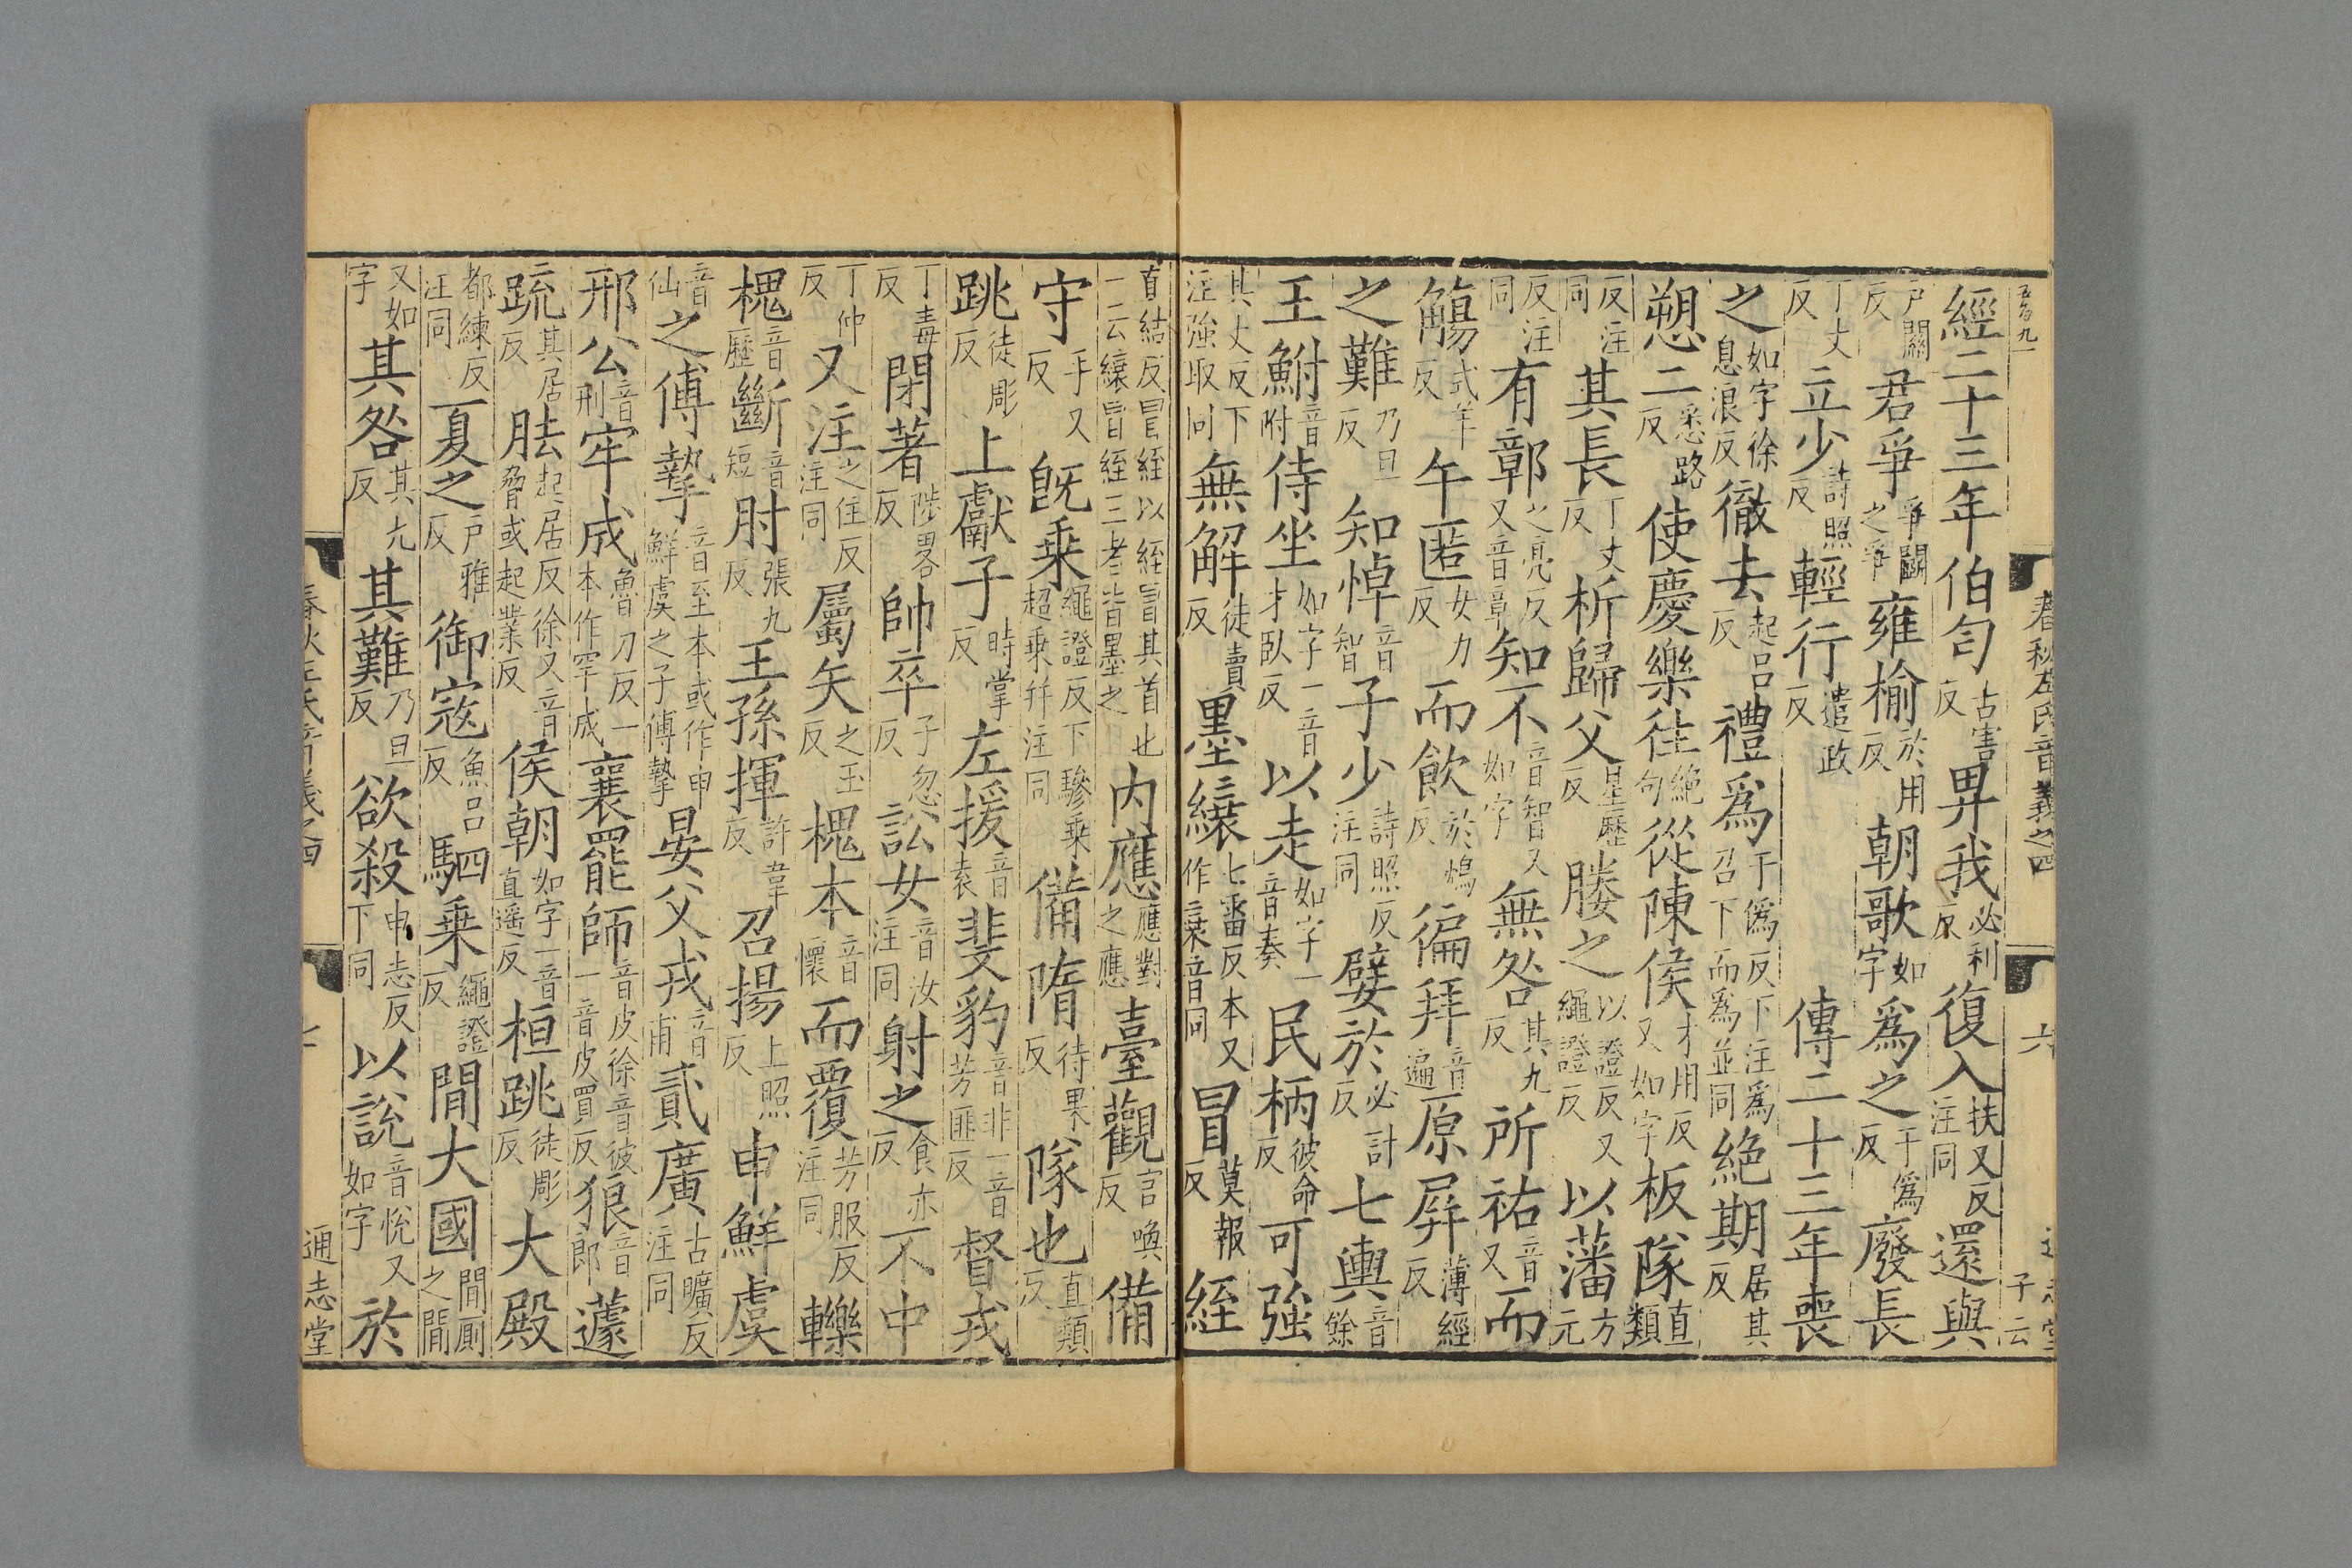 春秋左氏音義之四 六
經二十三年伯匄古害反畀我必利反復入扶又反注同還與
戶關反君爭爭鬭之爭雍榆於用反朝歌如字爲之于僞反廢長
丁丈反立少詩照反輕行遣政反傳二十三年喪
之如字徐息浪反徹去起呂反禮爲于僞反下注爲召下而爲並同絕期居其反
愬二悉路反使慶樂往絕句從陳侯才用反又如字板隊直類
反注同其長丁丈反析歸父星歷反媵之以證反又繩證反以藩方元
反注同有鄣之亮反又音章知不音智又如字無咎其九反所祐音又而
觴式羊反午匿女力反而飲於鴆反徧拜音遍原屛薄經反
之難乃旦反知悼音智子少詩照反注同嬖於必計反七輿音餘
王鮒音附侍坐如字一音才臥反以走如字一音奏民柄彼命反可強
其丈反下注強取同無解徒賣反墨縗七雷反本又作衰音同冒莫報反絰
直結反冒絰以絰冒其首也一云縗冒絰三者皆墨之內應應對之應臺觀官喚反備
守手又反旣乗繩證反下驂乗超乗幷注同備隋待果反隊也直類反
跳徒彫反上獻子時掌反左援音袁斐豹音非一音芳匪反督戎
丁毒反閉著陟畧反帥卒子忽反訟女音汝注同射之食亦反不中
丁仲反又注之住反注同屬矢之玉反槐本音懷而覆芳服反注同轢
音歷槐斷音短肘張九反王孫揮許韋反召揚上照反申鮮虞
音仙之傅摯音至本或作申鮮虞之子傅摯晏父戎音甫貳廣古曠反注同
邢公音刑牢成魯刀反一本作罕成襄罷師音皮徐音彼一音皮買反狼音郎蘧
疏其居反胠起居反徐又音脅或起業反侯朝如字一音直遥反桓跳徒彫反大殿
都練反注同夏之戶雅反御寇魚呂反駟乗繩證反閒大國閒厠之閒
又如字其咎其九反其難乃旦反欲殺申志反下同以說音悅又如字於
春秋左氏音義之四 通志堂